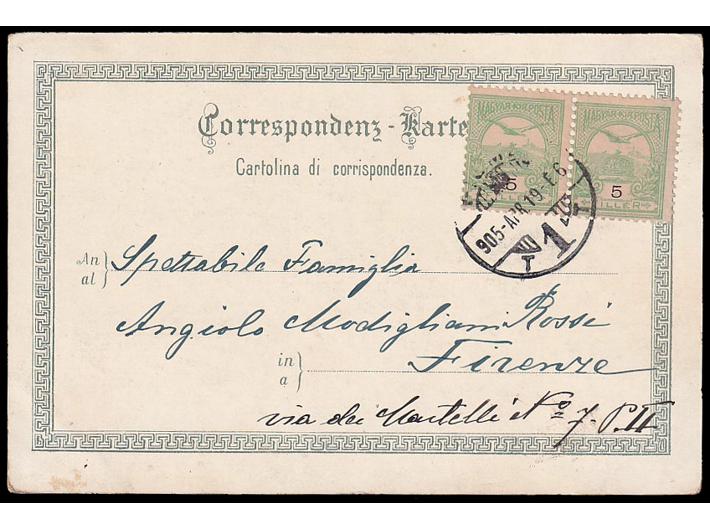 Correspondenz-Karte
Cartolina di corrispondenza.
MAGYAR·KIR·POSTA
MAGYAR·KIR·POSTA
5
5
FILLER
FILLER
905-APR 19-É6
T 1
An
al
Spettabile Famiglia
Angiolo Modigliani Rossi
in
a
Firenze
via dei Martelli No 7. P. II